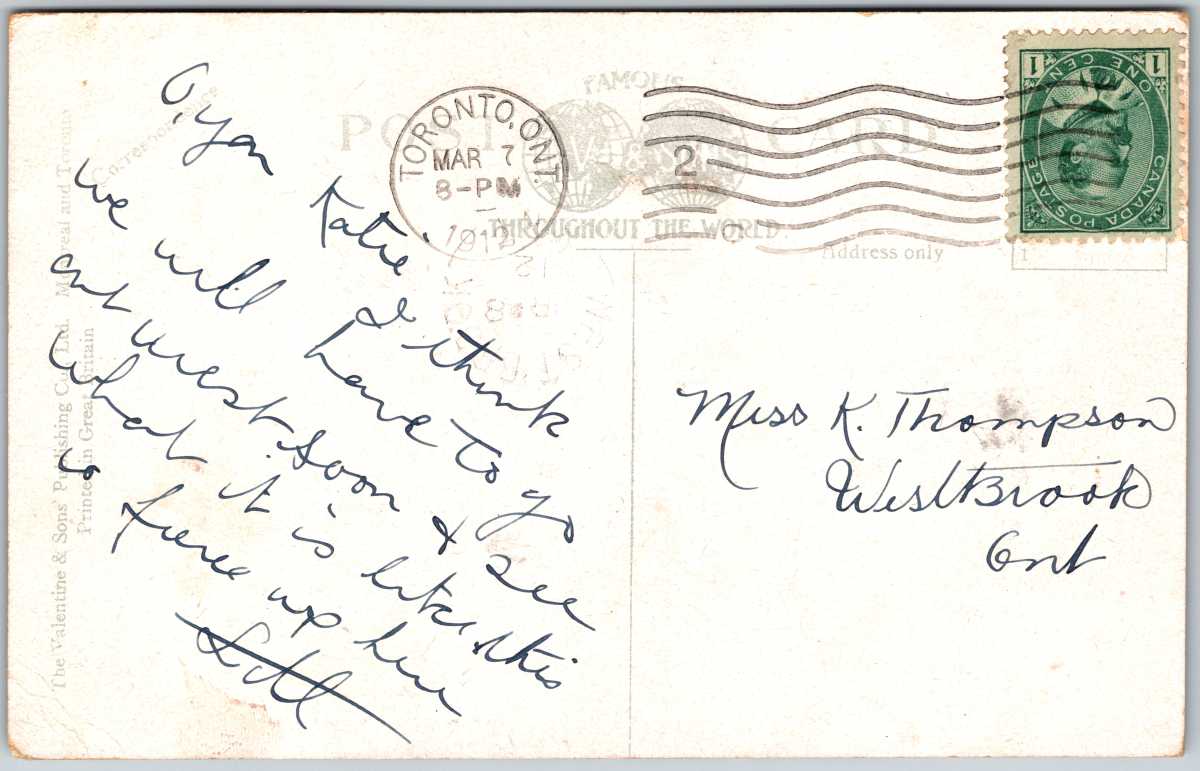 O, you Katie I think
we will have to go
out west soon & see
what it is like, this
is fierce up here
Miss K. Thompson
WestBrook
Ont
TORONTO, ONT.
MAR 7
8-PM
1912
2
FAMOUS
POST CARD
THROUGHOUT THE WORLD
Address only
CANADA POSTAGE
ONE CENT
1 1
The Valentine & Sons' Publishing Co., Ltd. Montreal and Toronto
Printed in Great Britain